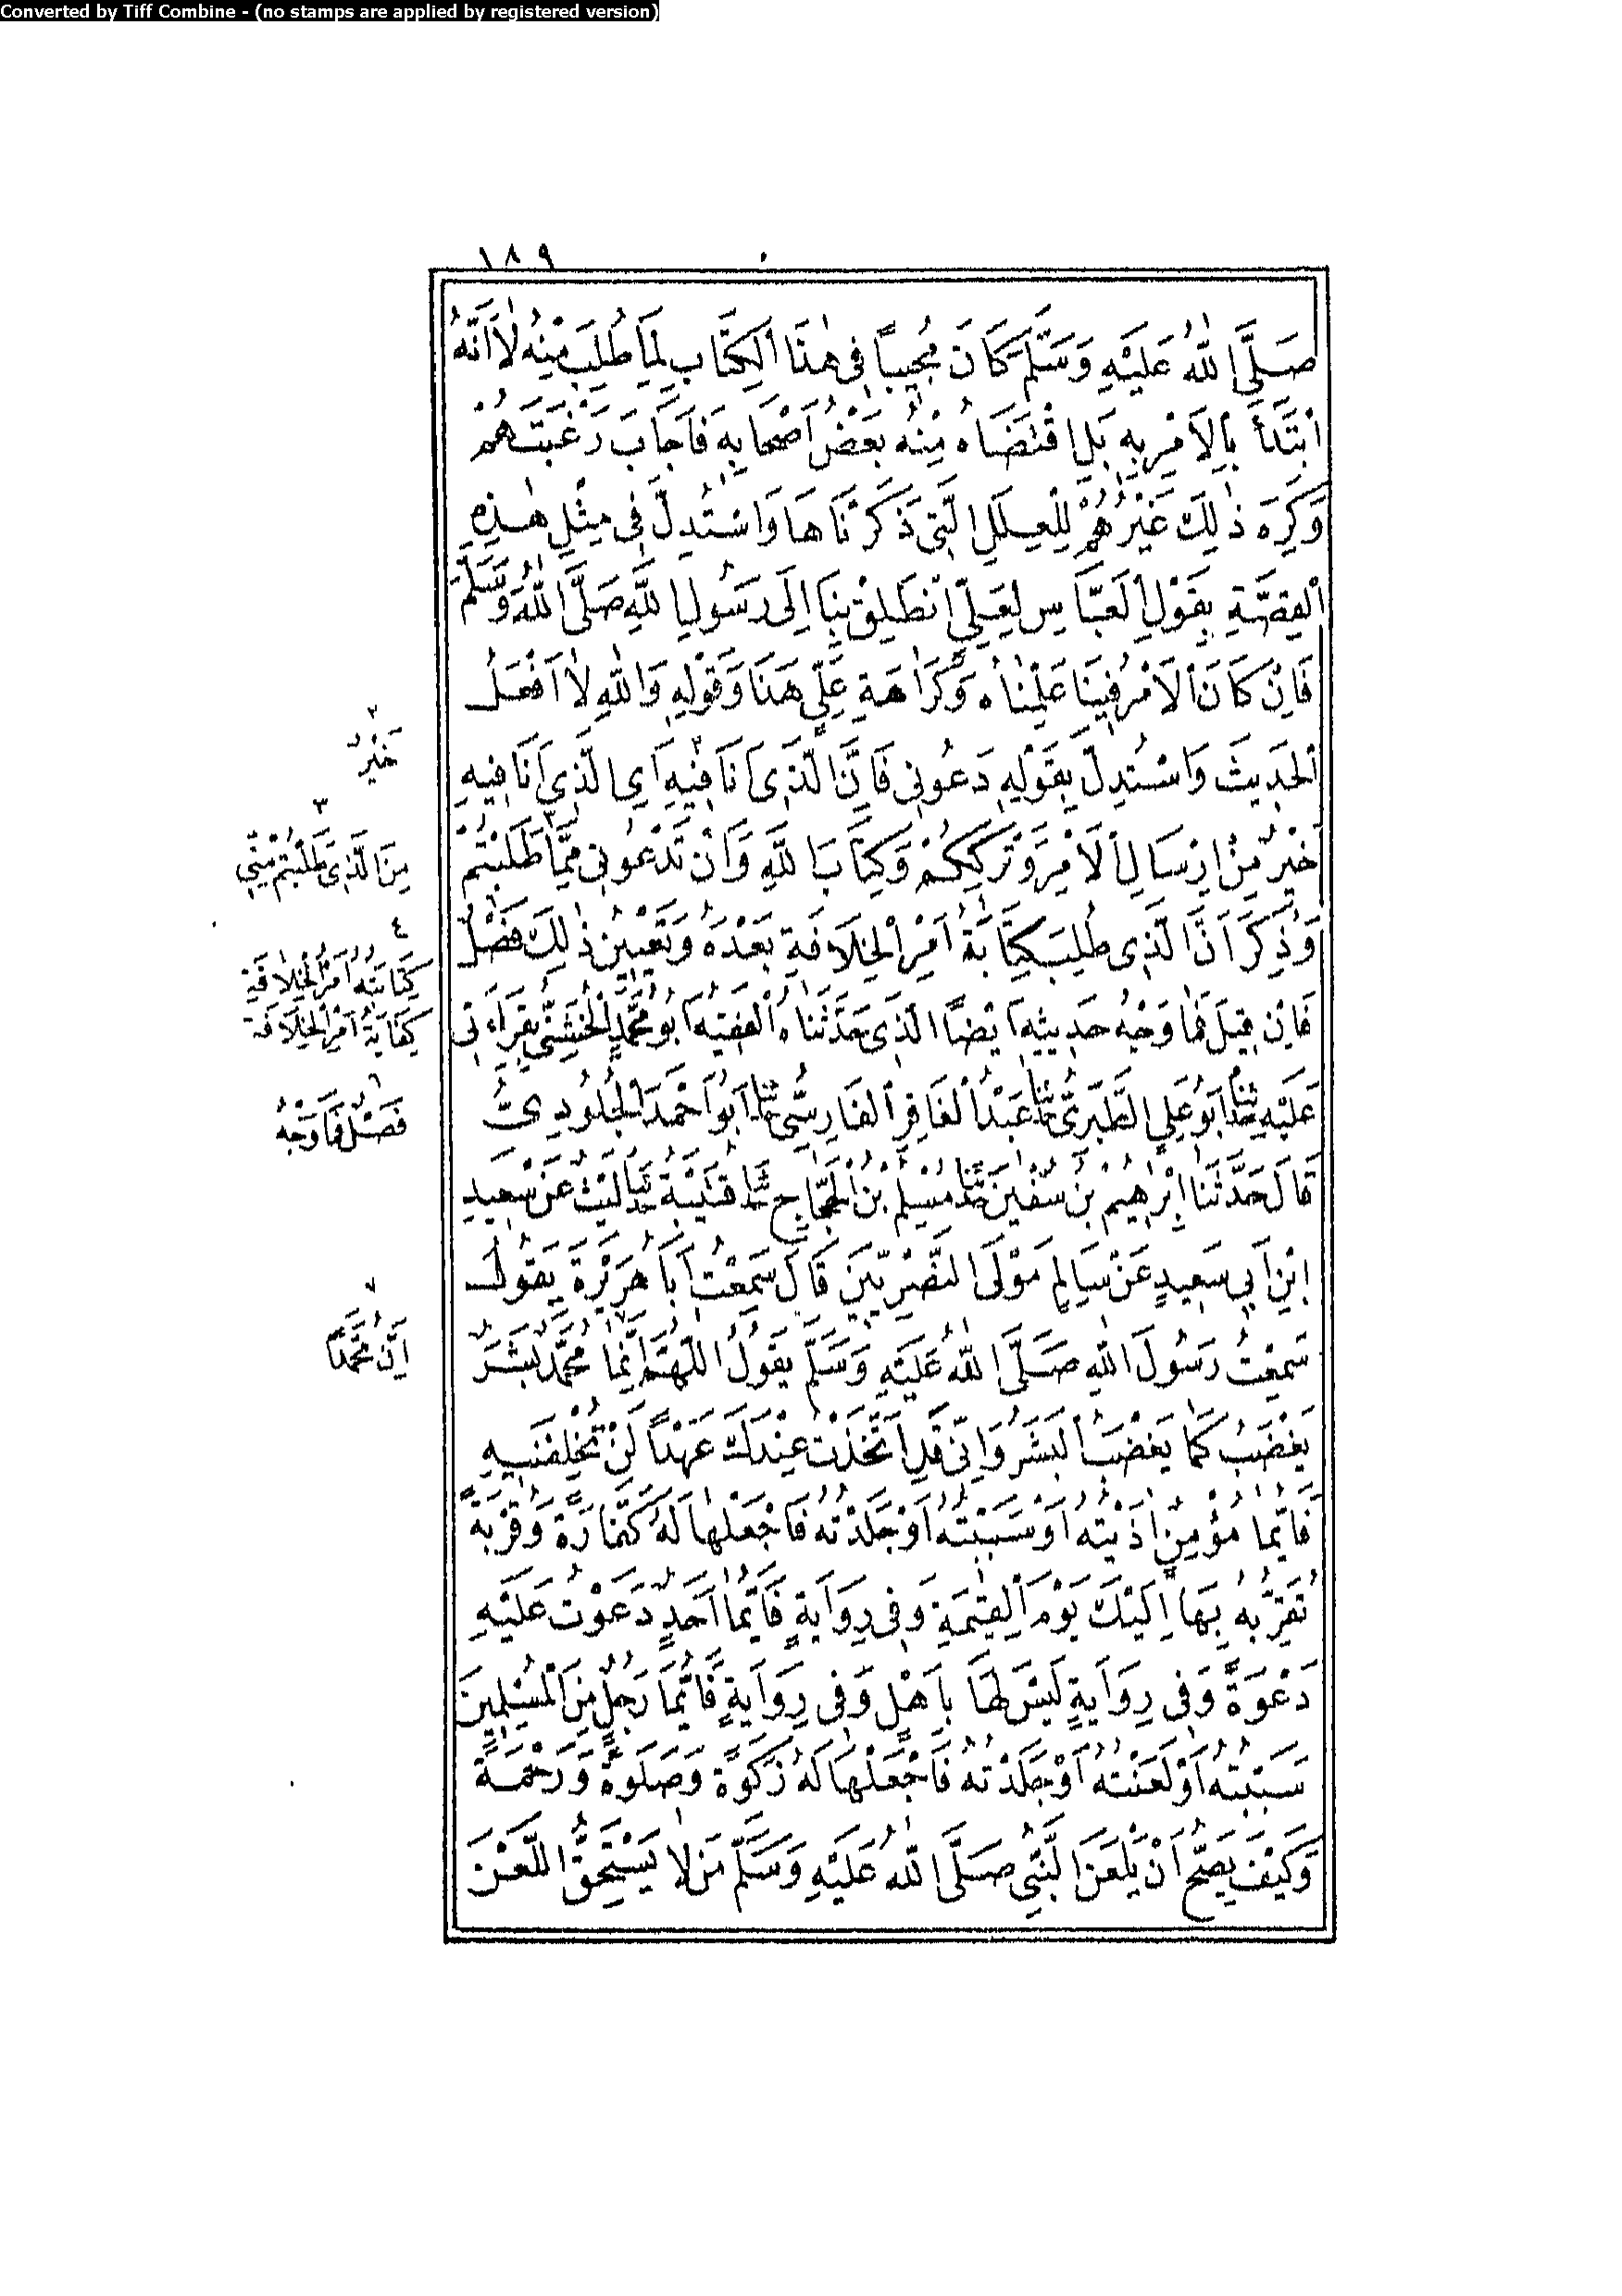 Converted by Tiff Combine - (no stamps are applied by registered version)
١٨٩
صَلَّى اللهُ عَلَيْهِ وَسَلَّمَ كَانَ مُجِيبًا فِى هٰذَا الْكِتَابِ لِمَا طُلِبَ مِنْهُ لَا أَنَّهُ
ابْتَدَأَ بِالْأَمْرِ بِهِ بَلِ اقْتَضَاهُ مِنْهُ بَعْضُ أَصْحَابِهِ فَأَجَابَ رَغْبَتَهُمْ
وَكَرِهَ ذٰلِكَ غَيْرُهُمْ لِلْعِلَلِ الَّتِى ذَكَرْنَاهَا وَاسْتُدِلَّ فِى مِثْلِ هٰذِهِ
الْقِصَّةِ بِقَوْلِ الْعَبَّاسِ لِعَلِىٍّ انْطَلِقْ بِنَا إِلَى رَسُولِ اللهِ صَلَّى اللهُ وَسَلَّمَ
فَإِنْ كَانَ الْأَمْرُ فِينَا عَلِمْنَاهُ وَكَرَاهَةِ عَلِىٍّ هَذَا وَقَوْلِهِ وَاللهِ لَا أَفْعَلُ
الْحَدِيثَ وَاسْتُدِلَّ بِقَوْلِهِ دَعُونِى فَإِنَّ الَّذِى أَنَا فِيهِ أَىِ الَّذِى أَنَا فِيهِ
خَيْرٌ مِنْ إِرْسَالِ الْأَمْرِ وَتَرْكِكُمْ وَكِتَابَ اللهِ وَأَنْ تَدْعُونِى مِمَّا طَلَبْتُمْ
وَذُكِرَ أَنَّ الَّذِى طُلِبَ كِتَابَةُ أَمْرِ الْخِلَافَةِ بَعْدَهُ وَتَعْيِينُ ذٰلِكَ فَصْلٌ
فَإِنْ قِيلَ فَمَا وَجْهُ حَدِيثِهِ أَيْضًا الَّذِى حَدَّثَنَاهُ الْفَقِيهُ أَبُو مُحَمَّدٍ الْخُشَنِىُّ بِقِرَاءَتِى
عَلَيْهِ ثنا أَبُو عَلِىٍّ الطَّبَرِىُّ ثنا عَبْدُ الْغَافِرِ الْفَارِسِىُّ ثنا أَبُو أَحْمَدَ الْجُلُودِىُّ
قَالَ حَدَّثَنَا إِبْرٰهِيمُ بْنُ سُفْيٰنَ ثنا مُسْلِمُ بْنُ الْحَجَّاجِ ثنا قُتَيْبَةُ ثنا لَيْثٌ عَنْ سَعِيدِ
ابْنِ أَبِى سَعِيدٍ عَنْ سَالِمٍ مَوْلَى النَّصْرِيِّينَ قَالَ سَمِعْتُ أَبَا هُرَيْرَةَ يَقُولُ
سَمِعْتُ رَسُولَ اللهِ صَلَّى اللهُ عَلَيْهِ وَسَلَّمَ يَقُولُ اللّٰهُمَّ إِنَّمَا مُحَمَّدٌ بَشَرٌ
يَغْضَبُ كَمَا يَغْضَبُ الْبَشَرُ وَإِنِّى قَدِ اتَّخَذْتُ عِنْدَكَ عَهْدًا لَنْ تُخْلِفَنِيهِ
فَأَيُّمَا مُؤْمِنٍ اٰذَيْتُهُ أَوْ سَبَبْتُهُ أَوْ جَلَدْتُهُ فَاجْعَلْهَا لَهُ كَفَّارَةً وَقُرْبَةً
تُقَرِّبُهُ بِهَا إِلَيْكَ يَوْمَ الْقِيٰمَةِ وَفِى رِوَايَةٍ فَأَيُّمَا أَحَدٍ دَعَوْتُ عَلَيْهِ
دَعْوَةً وَفِى رِوَايَةٍ لَيْسَ لَهَا بِأَهْلٍ وَفِى رِوَايَةٍ فَأَيُّمَا رَجُلٍ مِنَ الْمُسْلِمِينَ
سَبَبْتُهُ أَوْ لَعَنْتُهُ أَوْ جَلَدْتُهُ فَاجْعَلْهَا لَهُ زَكٰوةً وَصَلٰوةً وَرَحْمَةً
وَكَيْفَ يَصِحُّ أَنْ يَلْعَنَ النَّبِىُّ صَلَّى اللهُ عَلَيْهِ وَسَلَّمَ مَنْ لَا يَسْتَحِقُّ اللَّعْنَ
٢
خَيْرٌ
٣
مِنَ الَّذِى طَلَبْتُمْ مِنِّى
٤
كِتَابَتُهُ أَمْرُ الْخِلَافَةِ
كِفَايَةُ أَمْرِ الْخِلَافَةِ
٦
فَصْلٌ فَمَا وَجْهُ
٧
إِنَّ مُحَمَّدًا